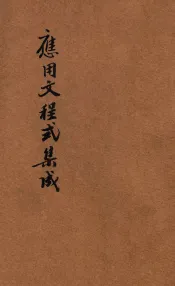 應用文程式集成